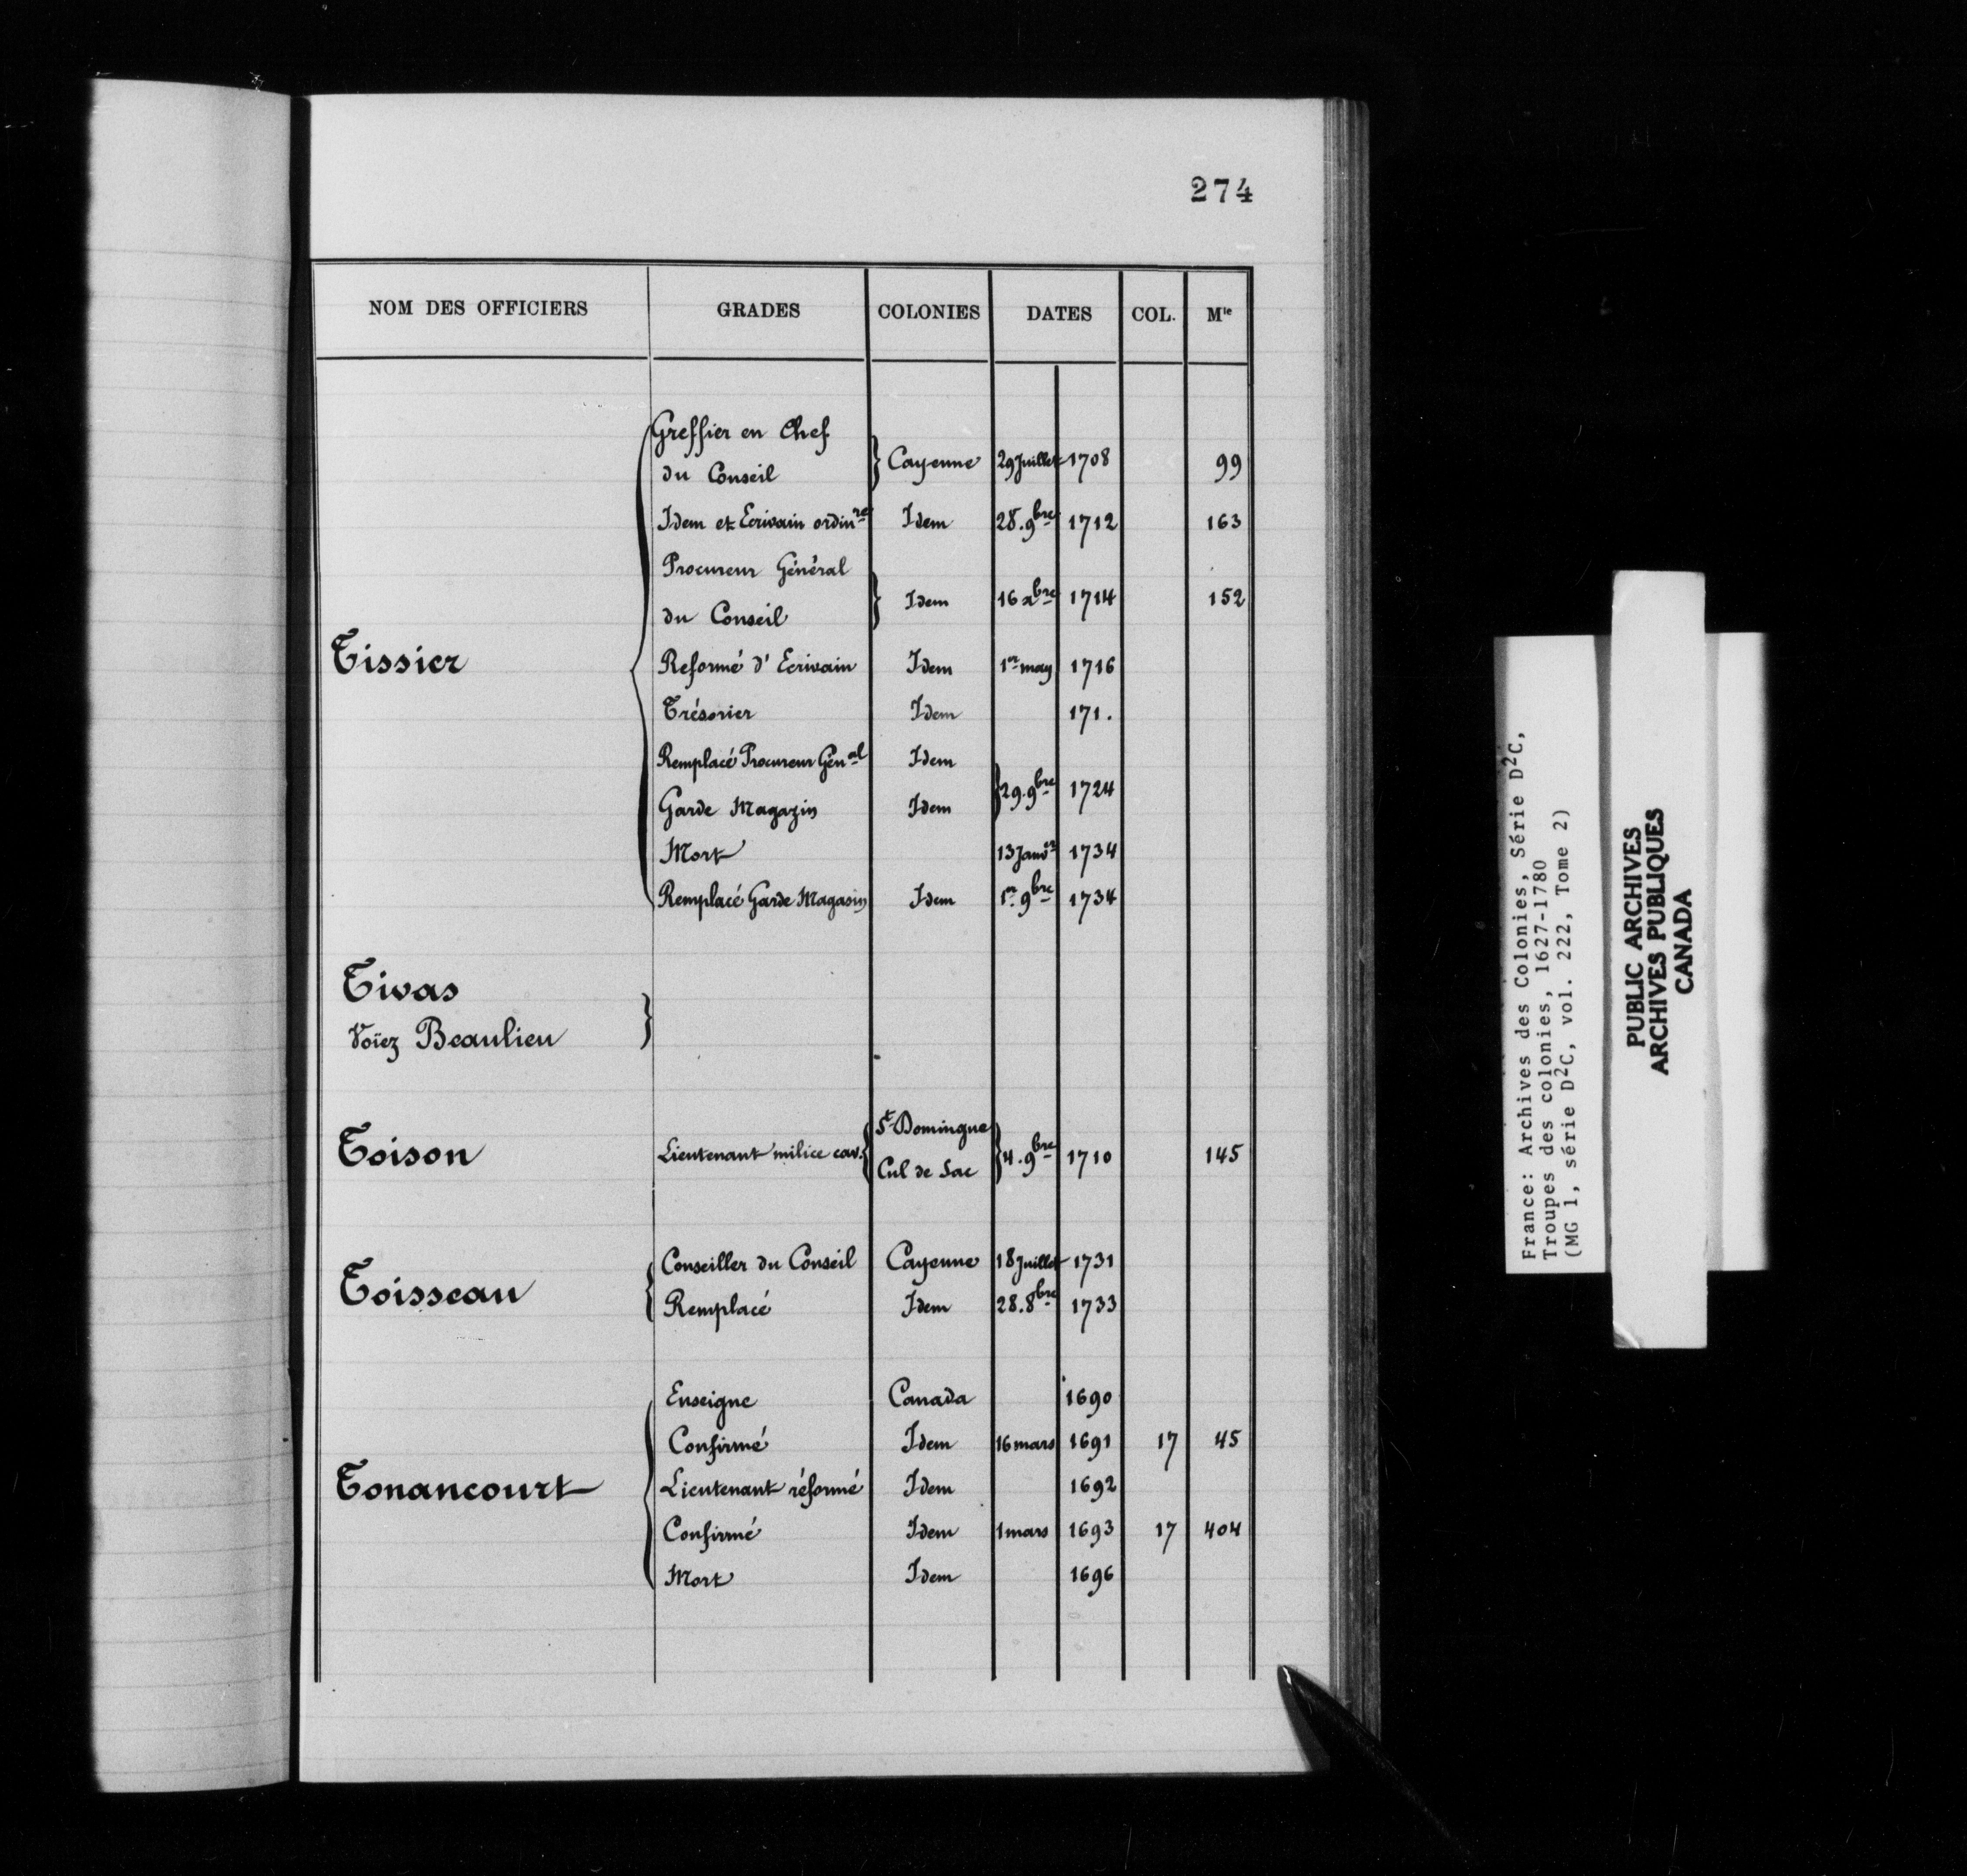 274
NOM DES OFFICIERS GRADES COLONIES DATES COL. Mle
Greffier en Chef
du Conseil Cayenne 29 Juillet 1708 99
Idem et Ecrivain ordinre Idem 28. 9bre 1712 163
Procureur Général
du Conseil Idem 16 xbre 1714 152
Tissier Reformé d'Ecrivain Idem 1er may 1716
Trésorier Idem 171.
Remplacé Procureur Génal Idem
29. 9bre 1724
Garde Magazin Idem
Mort 13 Janvr 1734
Remplacé Garde Magasin Idem 1er 9bre 1734
Tivas
Voïez Beaulieu
St Domingue
Toison Lieutenant milice cav. 4. 9bre 1710 145
Cul de Sac
Conseiller du Conseil Cayenne 18 Juillet 1731
Toisseau
Remplacé Idem 28. 8bre 1733
Enseigne Canada 1690
Confirmé Idem 16 mars 1691 17 45
Tonancourt Lieutenant réformé Idem 1692
Confirmé Idem 1 mars 1693 17 404
Mort Idem 1696
France: Archives des Colonies, Série D2C,
Troupes des colonies, 1627-1780
(MG 1, série D2C, vol. 222, Tome 2)
PUBLIC ARCHIVES
ARCHIVES PUBLIQUES
CANADA